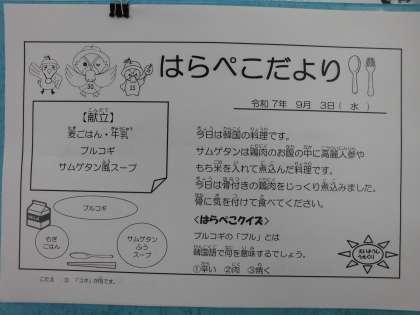 はらぺこだより
令和7年 9月 3日( 水 )
【献立】
麦ごはん・牛乳
プルコギ
サムゲタン風スープ
今日は韓国の料理です。
サムゲタンは鶏肉のお腹の中に高麗人参や
もち米を入れて煮込んだ料理です。
今日は骨付きの鶏肉をじっくり煮込みました。
骨に気を付けて食べてください。
<はらぺこクイズ>
プルコギの「プル」とは
韓国語で何を意味するでしょう。
①辛い ②肉 ③焼く
プルコギ
むぎ
ごはん
サムゲタン
ふう
スープ